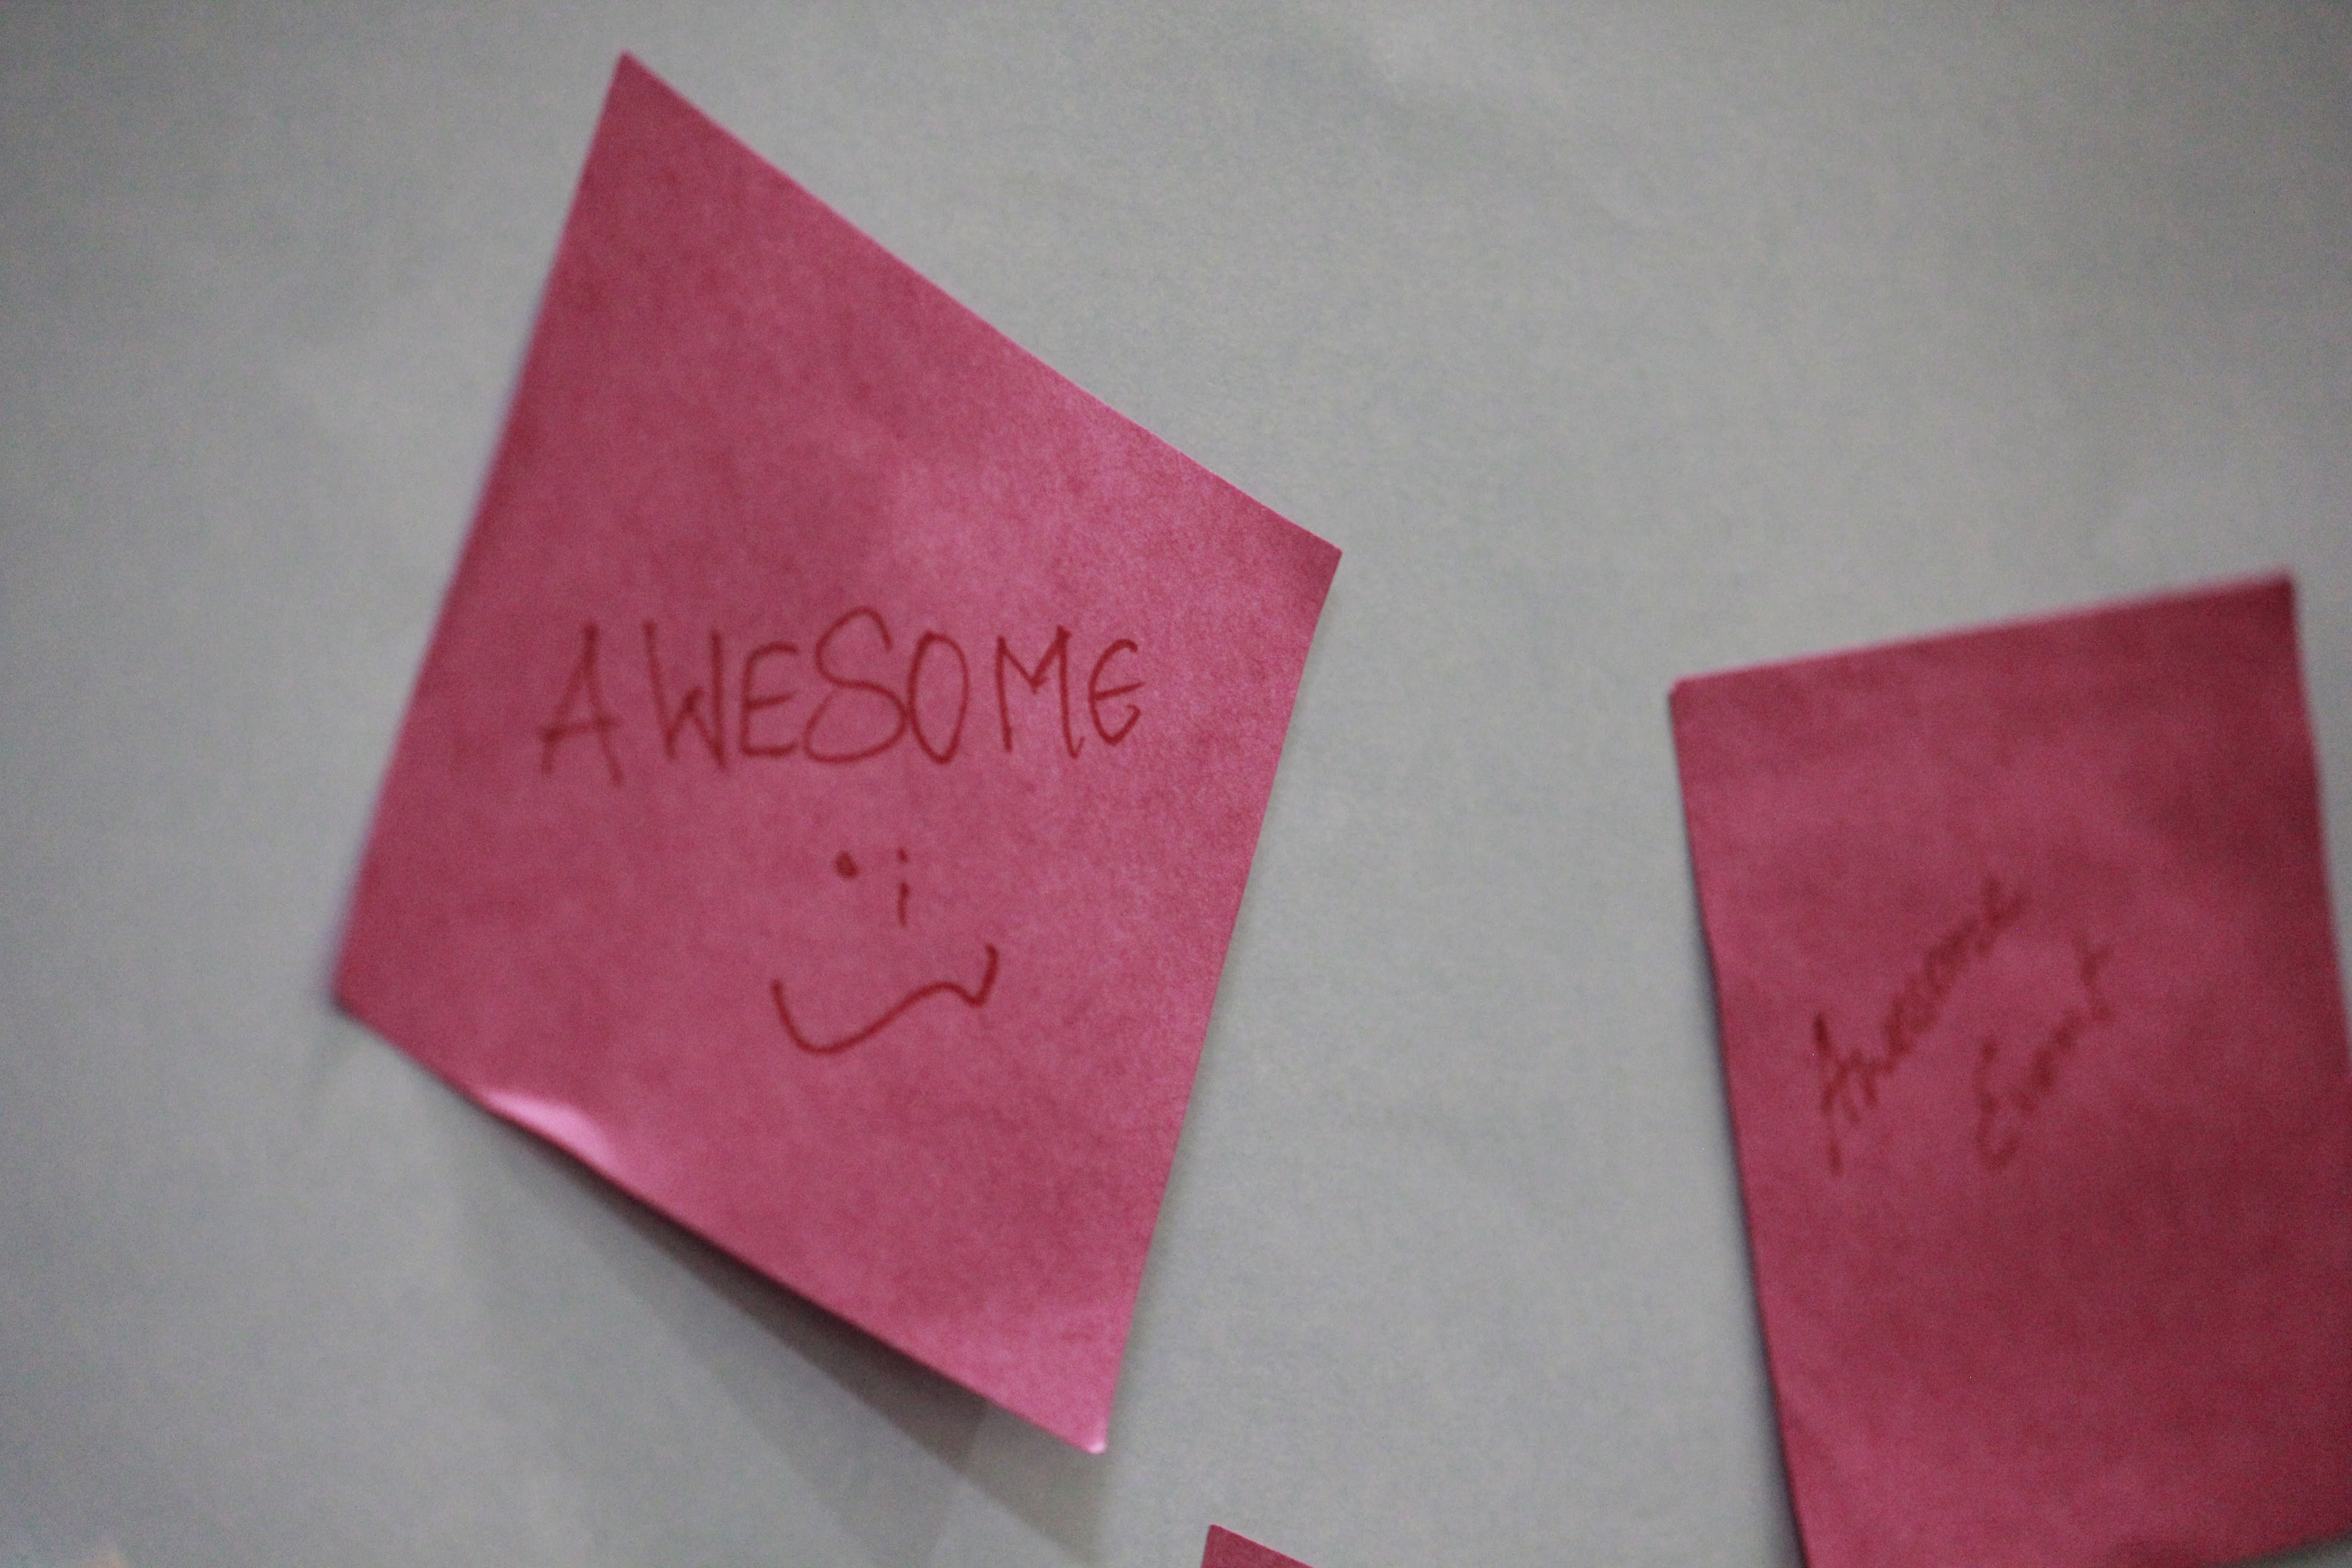 AWESOME
Awesome
Event